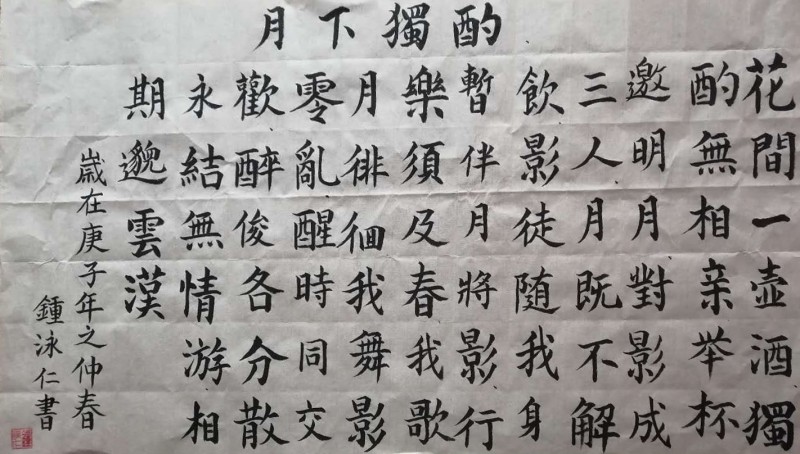 月下獨酌
花間一壺酒獨
酌無相亲举杯
邀明月對影成
三人月既不解
飲影徒随我身
暫伴月將影行
樂須及春我歌
月徘徊我舞影
零亂醒時同交
歡醉俊各分散
永結無情游相
期邈雲漢
歲在庚子年之仲春
鍾泳仁書